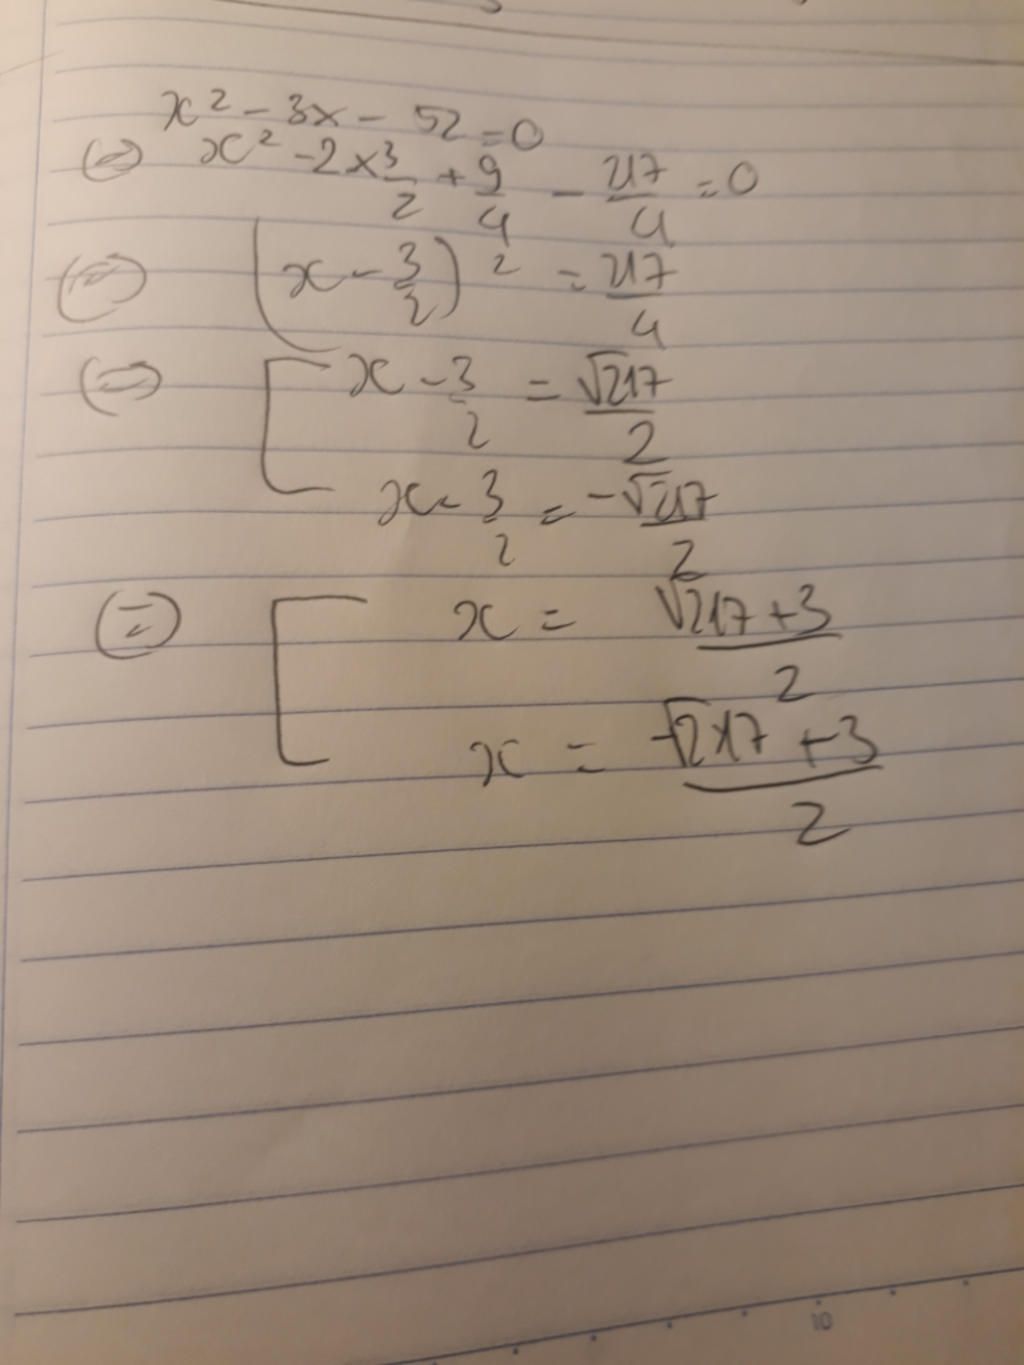 x² - 3x - 52 = 0
(⇔) x² - 2x 3/2 + 9/4 - 217/4 = 0
(⇔) (x - 3/2)² = 217/4
(⇔) [ x - 3/2 = √217/2
x - 3/2 = -√217/2
(⇔) [ x = (√217 + 3)/2
x = (-√217 + 3)/2
10